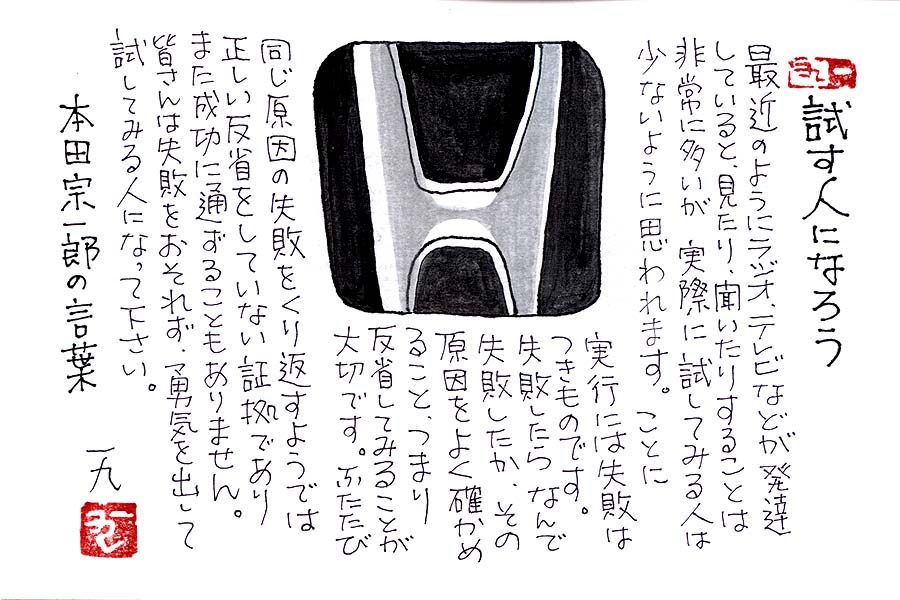 試す人になろう
最近のようにラジオ、テレビなどが発達
していると、見たり、聞いたりすることは
非常に多いが 実際に試してみる人は
少ないように思われます。ことに
実行には失敗は
つきものです。
失敗したら なんで
失敗したか、その
原因をよく確かめ
ること、つまり
反省してみることが
大切です。ふたたび
同じ原因の失敗をくり返すようでは
正しい反省をしていない証拠であり
また成功に通ずることもありません。
皆さんは失敗をおそれず、勇気を出して
試してみる人になって下さい。
本田宗一郎の言葉
一九